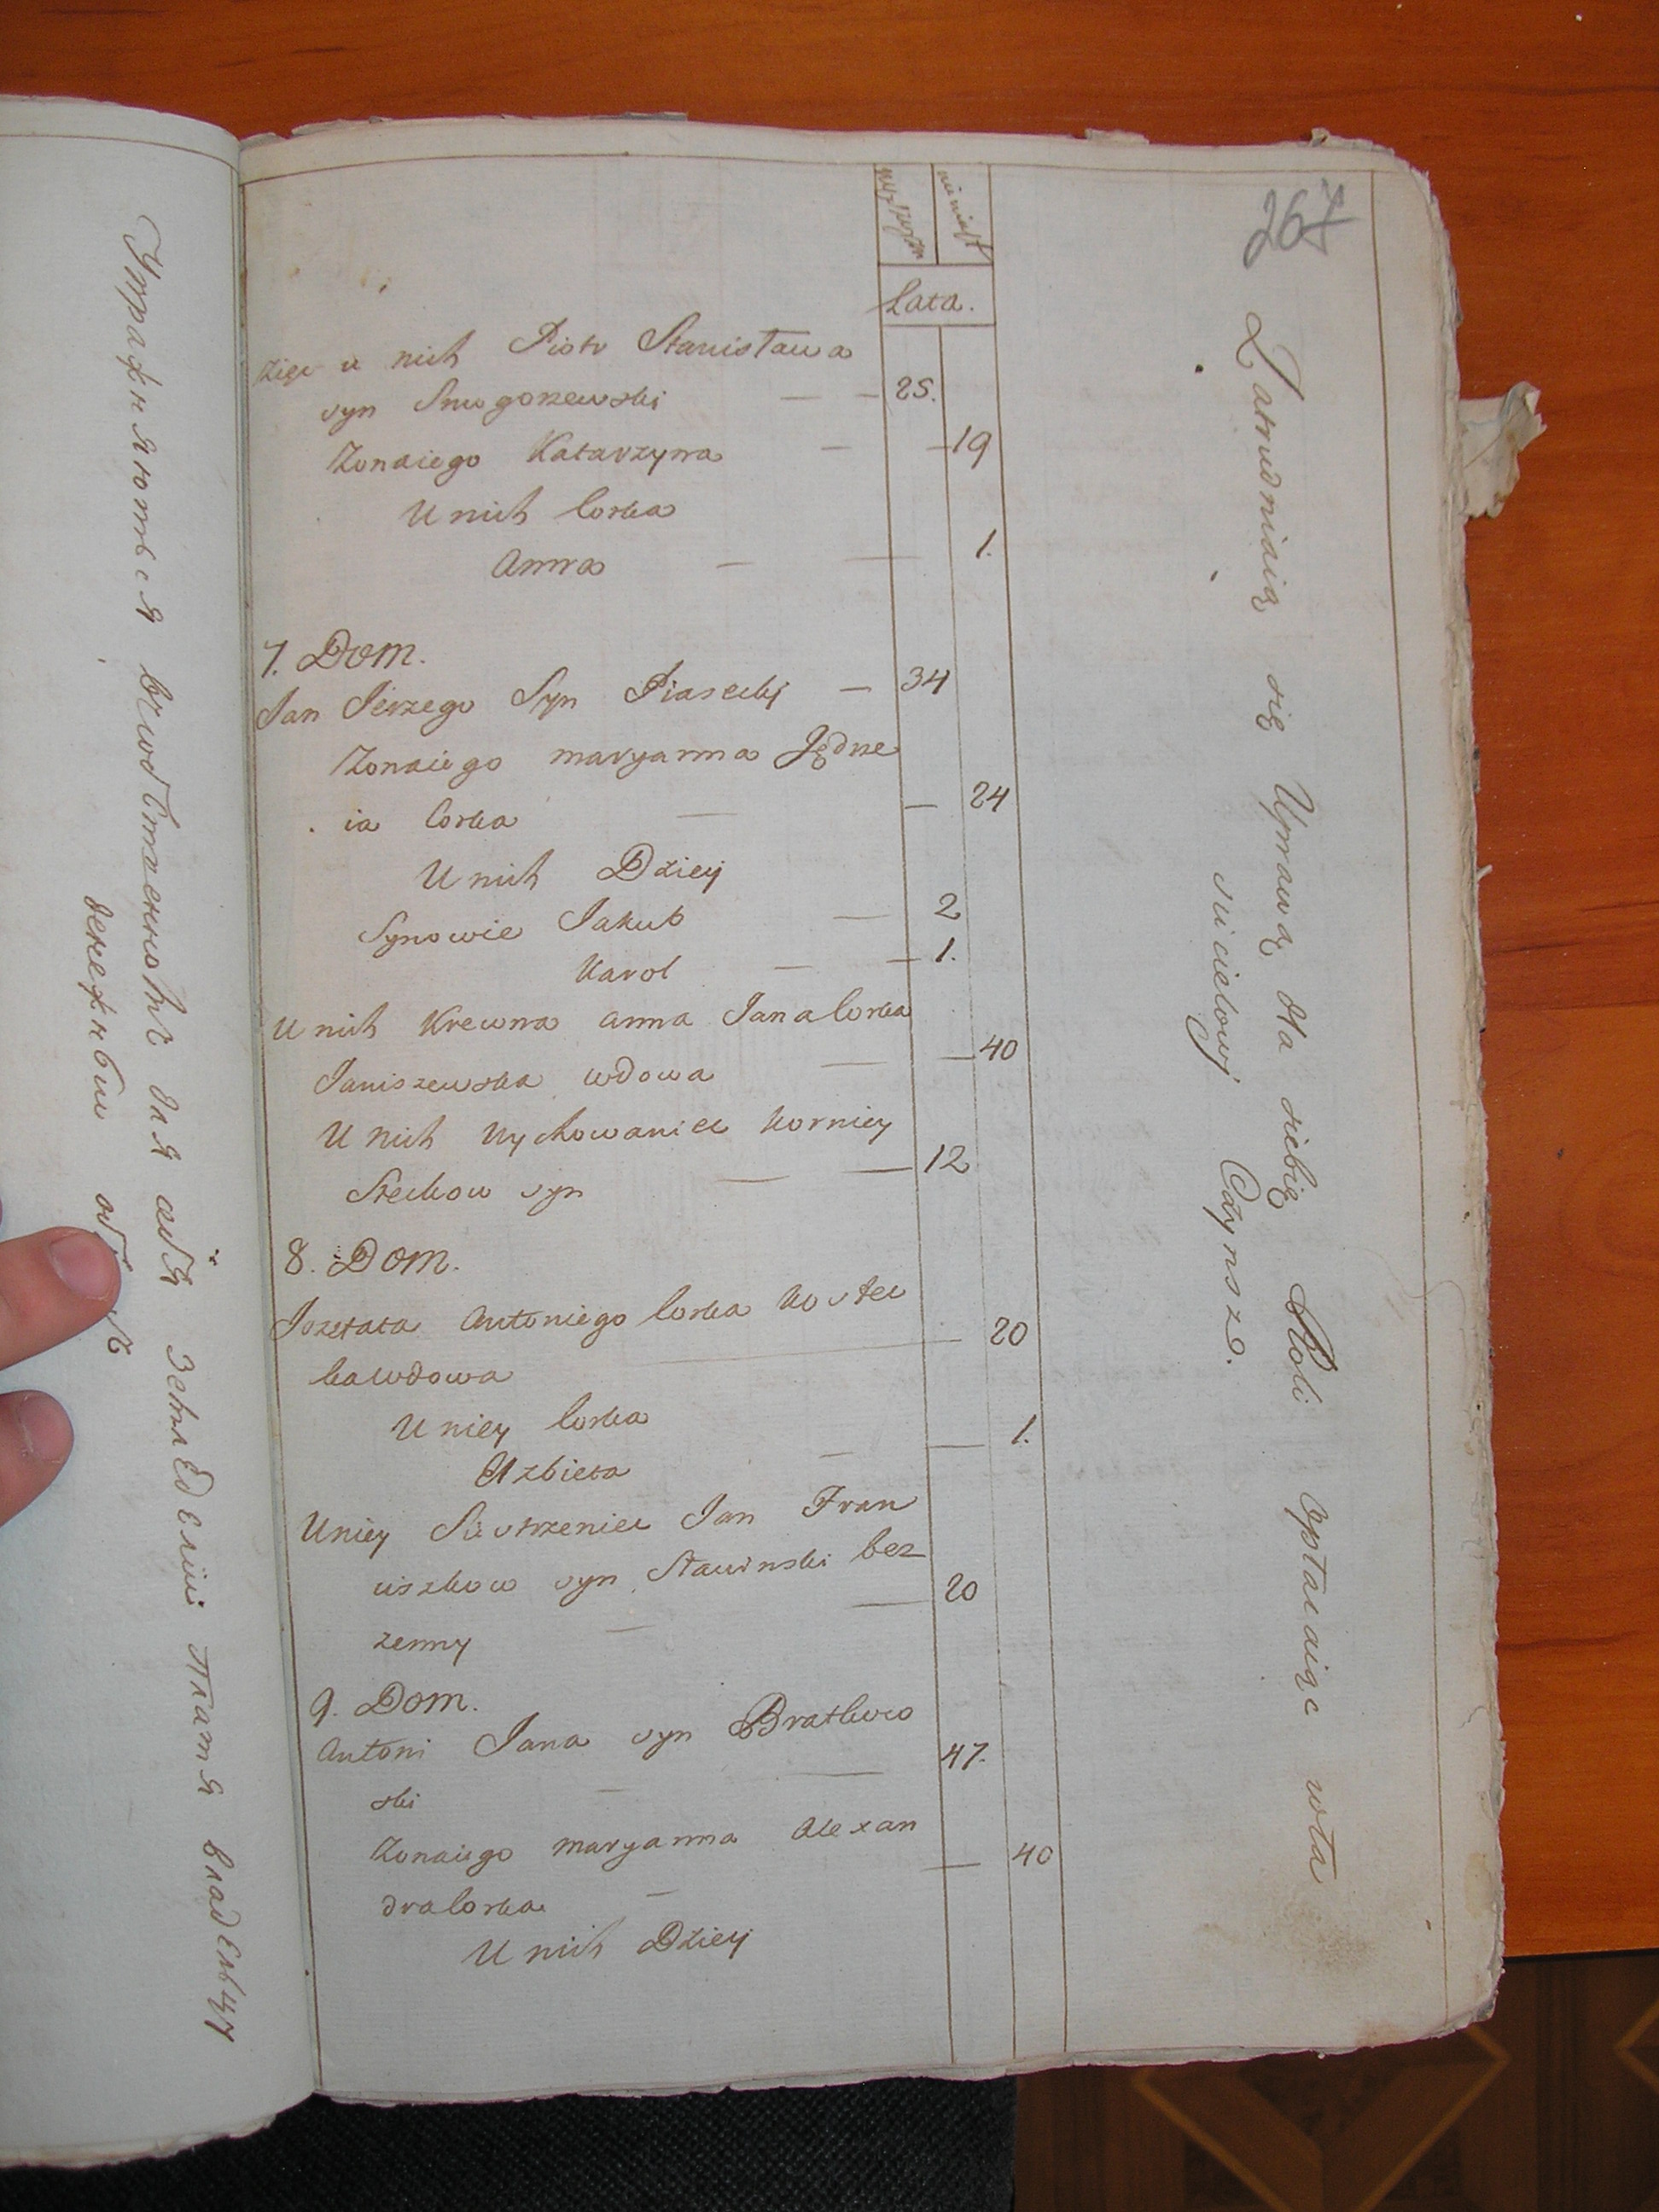 267
mężczyzn niewiast
Lata.
Zięć u nich Piotr Stanisława
syn Smogorzewski — — 25.
Zonaiego Katarzyna — — 19
U nich Corka
Anna — — 1.
7. Dom.
Jan Jerzego Syn Piasecky — 34
Zonaiego maryanna Jędrze
ia Corka — — 24
U nich Dziey
Synowie Jakub — 2
Karol — — 1.
U nich Krewna anna Jana Corka
Janiszewska wdowa — — 40
U nich Wychowaniec Korniey
Steckow syn — — 12
8. Dom.
Jozefata Antoniego Corka Kostec
kawdowa — 20
U niey Corka
Elzbieta — — 1.
Uniey Siestrzeniec Jan Fran
ciszkow syn Stawinski bez
zenny — — 20
9. Dom.
Antoni Jana syn Bratkow
ski — — 47.
Zonaiego maryanna Alexan
dra Corka — — 40
U nich Dziey
Zatrudniaią się Uprawą dla siebię Roli Opłacaiąc wła
sicielowj Czynsz.
Упражняются
для себя Земледелии платя владельцу
денежный